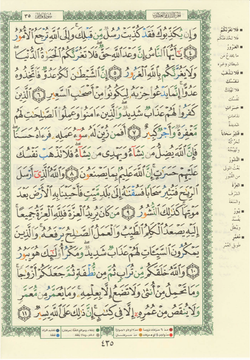 وَإِن يُكَذِّبُوكَ فَقَدْ كُذِّبَتْ رُسُلٌ مِّن قَبْلِكَ وَإِلَى اللَّهِ تُرْجَعُ الْأُمُورُ
٤ يَا أَيُّهَا النَّاسُ إِنَّ وَعْدَ اللَّهِ حَقٌّ فَلَا تَغُرَّنَّكُمُ الْحَيَاةُ الدُّنْيَا
وَلَا يَغُرَّنَّكُم بِاللَّهِ الْغَرُورُ ٥ إِنَّ الشَّيْطَانَ لَكُمْ عَدُوٌّ فَاتَّخِذُوهُ
عَدُوًّا إِنَّمَا يَدْعُو حِزْبَهُ لِيَكُونُوا مِنْ أَصْحَابِ السَّعِيرِ ٦ الَّذِينَ
كَفَرُوا لَهُمْ عَذَابٌ شَدِيدٌ وَالَّذِينَ آمَنُوا وَعَمِلُوا الصَّالِحَاتِ لَهُم
مَّغْفِرَةٌ وَأَجْرٌ كَبِيرٌ ٧ أَفَمَن زُيِّنَ لَهُ سُوءُ عَمَلِهِ فَرَآهُ حَسَنًا
فَإِنَّ اللَّهَ يُضِلُّ مَن يَشَاءُ وَيَهْدِي مَن يَشَاءُ فَلَا تَذْهَبْ نَفْسُكَ
عَلَيْهِمْ حَسَرَاتٍ إِنَّ اللَّهَ عَلِيمٌ بِمَا يَصْنَعُونَ ٨ وَاللَّهُ الَّذِي أَرْسَلَ
الرِّيَاحَ فَتُثِيرُ سَحَابًا فَسُقْنَاهُ إِلَى بَلَدٍ مَّيِّتٍ فَأَحْيَيْنَا بِهِ الْأَرْضَ بَعْدَ
مَوْتِهَا كَذَلِكَ النُّشُورُ ٩ مَن كَانَ يُرِيدُ الْعِزَّةَ فَلِلَّهِ الْعِزَّةُ جَمِيعًا
إِلَيْهِ يَصْعَدُ الْكَلِمُ الطَّيِّبُ وَالْعَمَلُ الصَّالِحُ يَرْفَعُهُ وَالَّذِينَ
يَمْكُرُونَ السَّيِّئَاتِ لَهُمْ عَذَابٌ شَدِيدٌ وَمَكْرُ أُولَئِكَ هُوَ يَبُورُ
١٠ وَاللَّهُ خَلَقَكُم مِّن تُرَابٍ ثُمَّ مِن نُّطْفَةٍ ثُمَّ جَعَلَكُمْ أَزْوَاجًا
وَمَا تَحْمِلُ مِنْ أُنثَى وَلَا تَضَعُ إِلَّا بِعِلْمِهِ وَمَا يُعَمَّرُ مِن مُّعَمَّرٍ
وَلَا يُنقَصُ مِنْ عُمُرِهِ إِلَّا فِي كِتَابٍ إِنَّ ذَلِكَ عَلَى اللَّهِ يَسِيرٌ ١١
٤٣٥